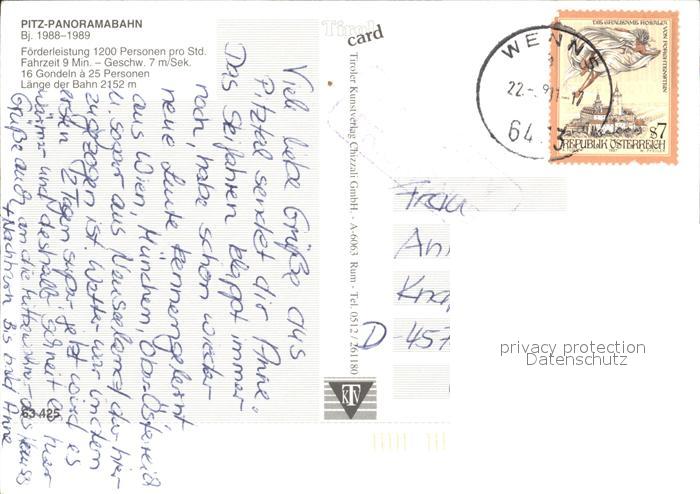 PITZ-PANORAMABAHN
Bj. 1988–1989
Förderleistung 1200 Personen pro Std.
Fahrzeit 9 Min. – Geschw. 7 m/Sek.
16 Gondeln à 25 Personen
Länge der Bahn 2152 m
Viele liebe Grüße aus
Pitztal sendet dir Anne.
Das Skifahren klappt immer
noch, habe schon wieder
neue Leute kennengelernt
aus Wien, München, Ober-Österreich
u. sogar aus Neuseeland der hier
zugezogen ist. Wetter war in den
ersten 2 Tagen super, jetzt wird es
wärmer und deshalb schneit es hier
Grüße auch an die Mitbewohner des Hauses
+ Nachbarn Bis bald Anne
63 425
Tirol
card
Tiroler Kunstverlag Chizzali GmbH. - A-6063 Rum - Tel. 0512 / 261180
KTV
WENNS
22.-. 9-17
64 3
DIE GRAUSAME ROSALIA VON FORCHTENSTEIN
S7
REPUBLIK ÖSTERREICH
Frau
An
Kna
D-457
privacy protection
Datenschutz